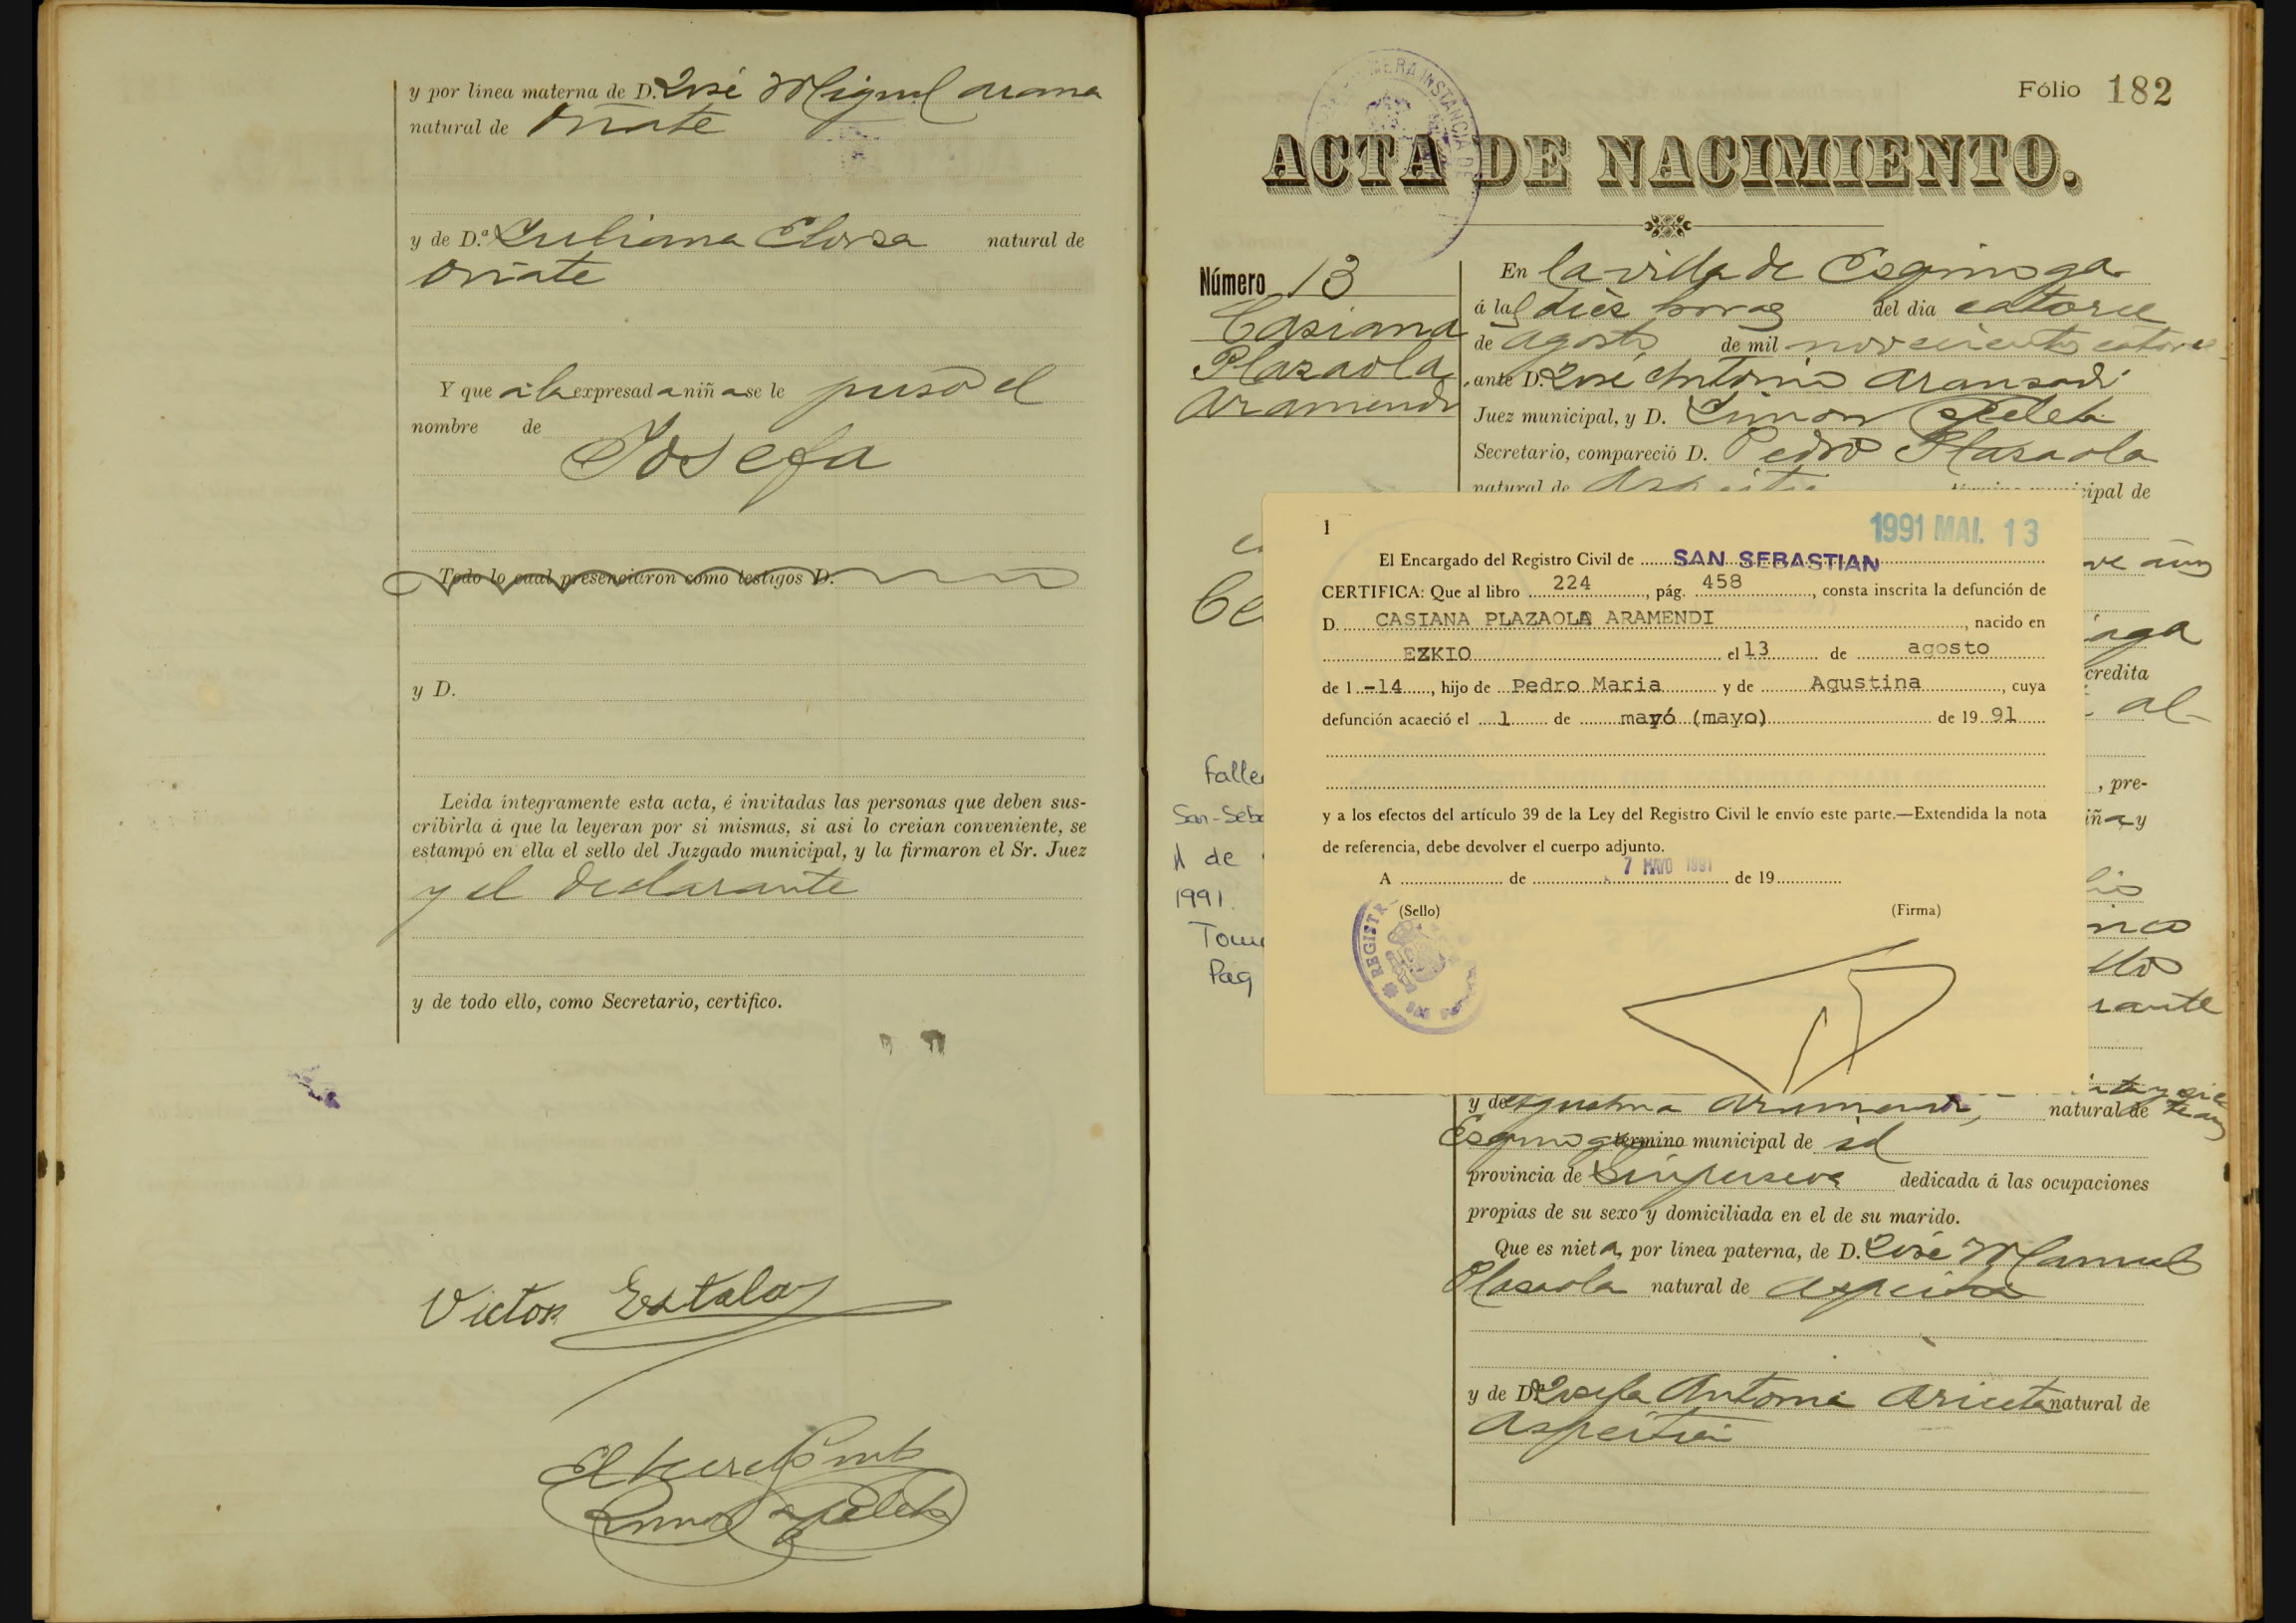 y por línea materna de D. José Miguel Arana
natural de Oñate
y de D.ª Juliana Elorza natural de
Oñate
Y que á la expresada niña se le puso el
nombre de
Josefa
Todo lo cual presenciaron como testigos D.
y D.
Leida íntegramente esta acta, é invitadas las personas que deben sus-
cribirla á que la leyeran por si mismas, si asi lo creian conveniente, se
estampó en ella el sello del Juzgado municipal, y la firmaron el Sr. Juez
y el declarante
y de todo ello, como Secretario, certifico.
Victor
Fólio 182
ACTA DE NACIMIENTO.
Número 13
Casiana
Plazaola
Aramendi
En la villa de Esquioga
á las diez horas del dia catorce
de agosto de mil novecientos catorce
ante D. José Antonio Aranzadi
Juez municipal, y D. Simon
Secretario, compareció D. Pedro Plazaola
natural de Azpeitia término municipal de
1
1991 MAI. 13
El Encargado del Registro Civil de SAN SEBASTIAN
CERTIFICA: Que al libro 224, pág. 458, consta inscrita la defunción de
D. CASIANA PLAZAOLA ARAMENDI, nacido en
EZKIO el 13 de agosto
de 1 -14, hijo de Pedro Maria y de Agustina, cuya
defunción acaeció el 1 de mayó (mayo) de 19 91
y a los efectos del artículo 39 de la Ley del Registro Civil le envío este parte.—Extendida la nota
de referencia, debe devolver el cuerpo adjunto.
7 MAYO 1991
A de de 19
(Sello) (Firma)
REGISTR
credita
al-
, pre-
iña y
rante
Falle
San-Seba
1 de
1991.
Tomo
Pag
y de Agustina Aramendi, natural de
Esquioga término municipal de id
provincia de Guipuzcoa dedicada á las ocupaciones
propias de su sexo y domiciliada en el de su marido.
Que es nieta, por línea paterna, de D. José Manuel
Plazaola natural de Azpeitia
y de D.ª Josefa Antonia Arieta natural de
Azpeitia